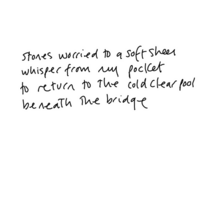 stones worried to a soft sheen
whisper from my pocket
to return to the cold clear pool
beneath the bridge